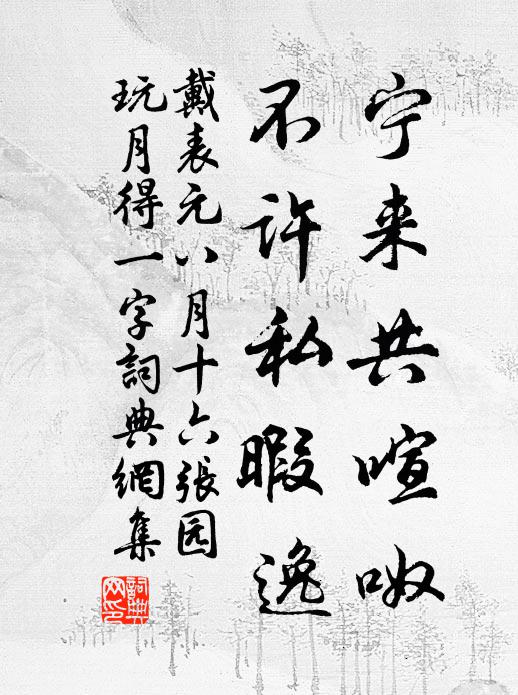 宁来共喧呶
不许私暇逸
戴表元八月十六張园
玩月得一字詞典網集
詞典